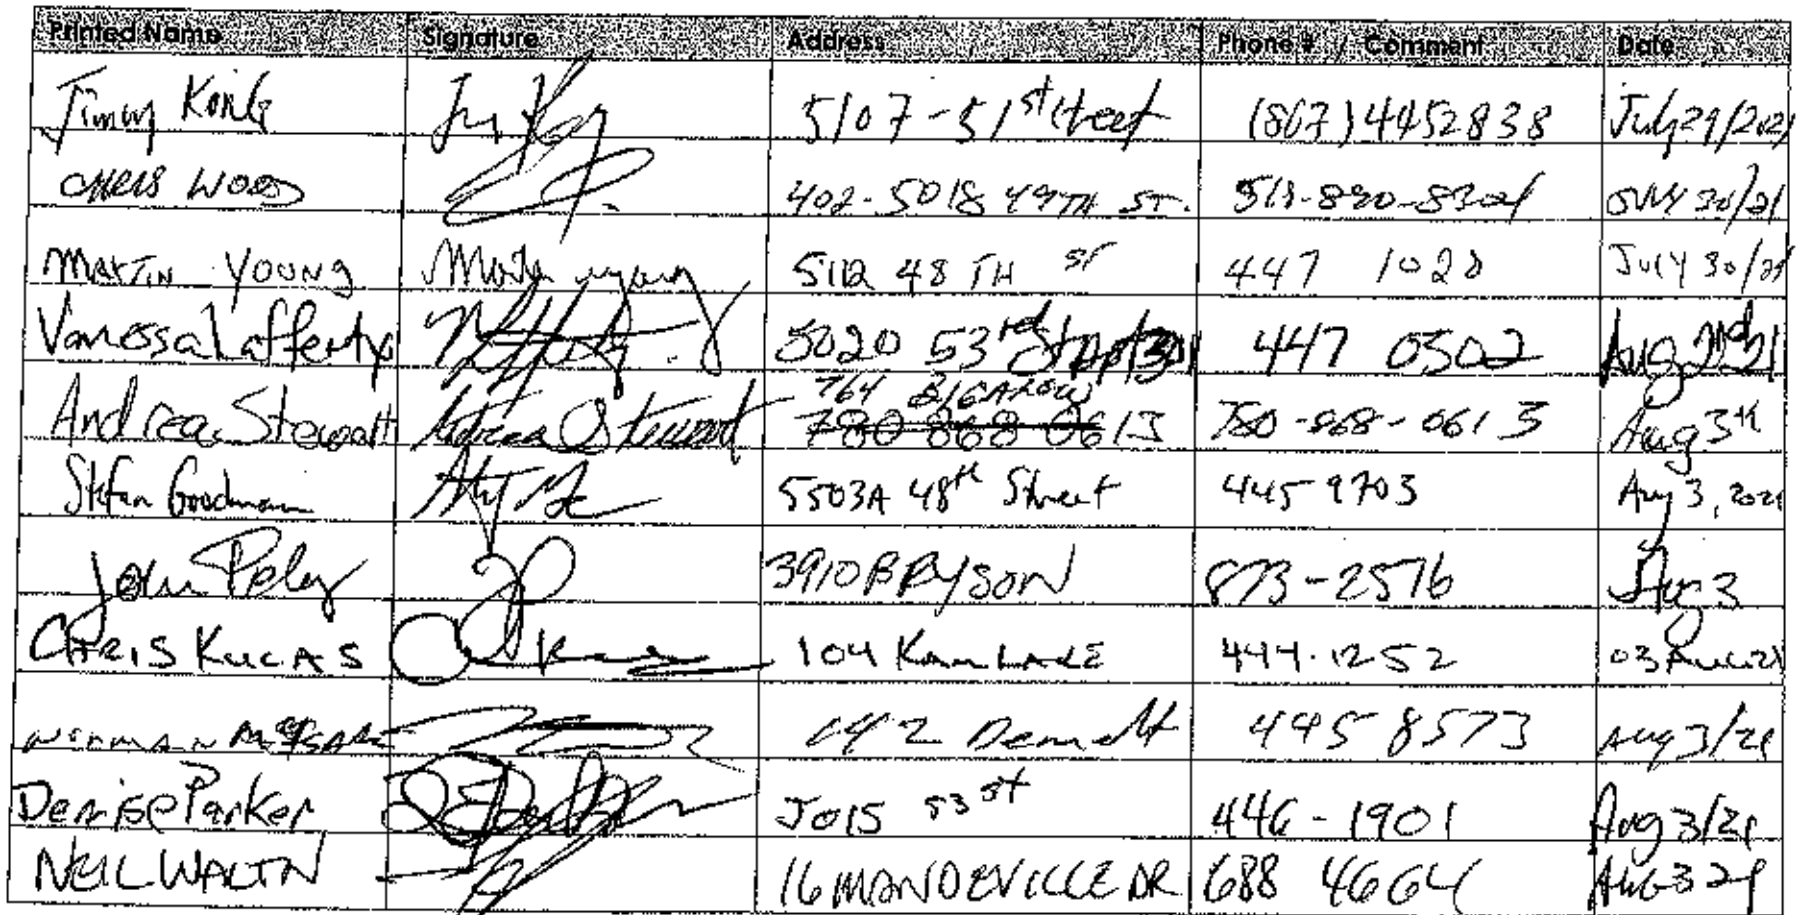 Printed Name Signature Address Phone # / Comment Date
Jimmy Kong 5107-51st street (867)4452838 July29/2021
CHRIS WOOD 402-5018 49TH ST. July 30/21
MARTIN YOUNG Martin young 5112 48 TH ST 447 1020 JULY 30/21
Vanessa Lafferty 5020 53rd St Apt 301 447 0502 Aug 2nd 21
Andrea Stewart Andrea Stewart 764 BIGELOW 780 868 0613 780-868-0613 Aug 3th
Stefan Goodman 5503A 48th Street 445 9703 Aug 3, 2021
John 3910 BRYSON 873-2576 Aug 3
CHRIS KUCAS 104 Kam LAKE 444.1252 03 AUG 21
NORMAN 142 Demelt 445 8573 Aug 3/21
Denise Parker 5015 53 st 446-1901 Aug 3/21
NEIL WALTN 16 MANDEVILLE DR 688 4664 AUG 3 21